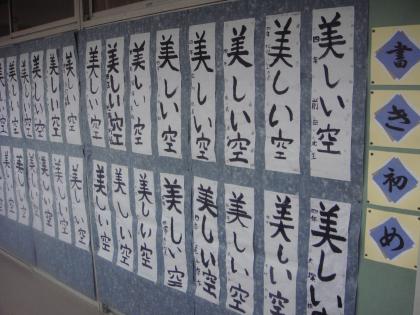 書き初め
美しい空
四年
美しい空
美しい空
美しい空
美しい空
美しい空
美しい空
美しい空
美しい空
美しい空
美しい空
美しい空
美しい空
美しい
四年
美しい空
美しい空
美しい空
美しい空
美しい空
美しい空
美しい空
美しい空
美しい空
美しい空
美しい空
美しい空